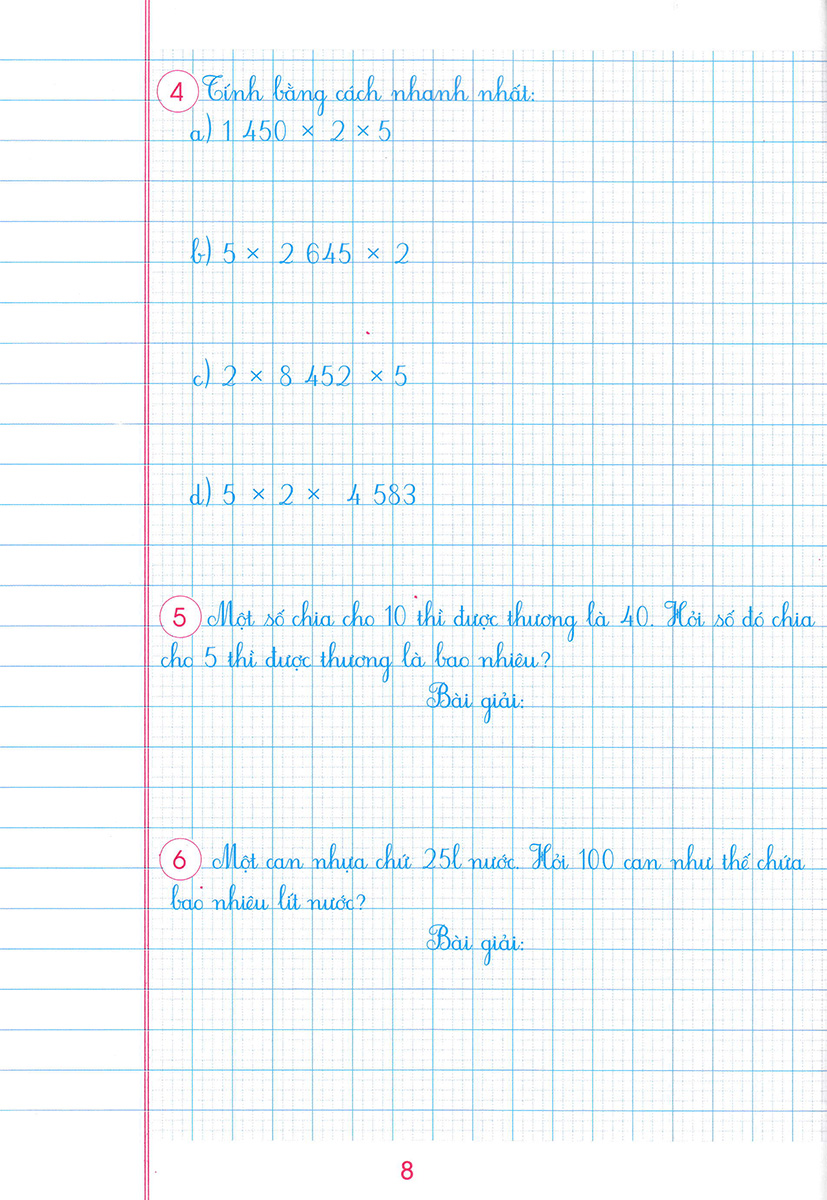 4 Tính bằng cách nhanh nhất:
a) 1 450 × 2 × 5
b) 5 × 2 645 × 2
c) 2 × 8 452 × 5
d) 5 × 2 × 4 583
5 Một số chia cho 10 thì được thương là 40. Hỏi số đó chia
cho 5 thì được thương là bao nhiêu?
Bài giải:
6 Một can nhựa chứ 25l nước. Hỏi 100 can như thế chứa
bao nhiêu lít nước?
Bài giải:
8